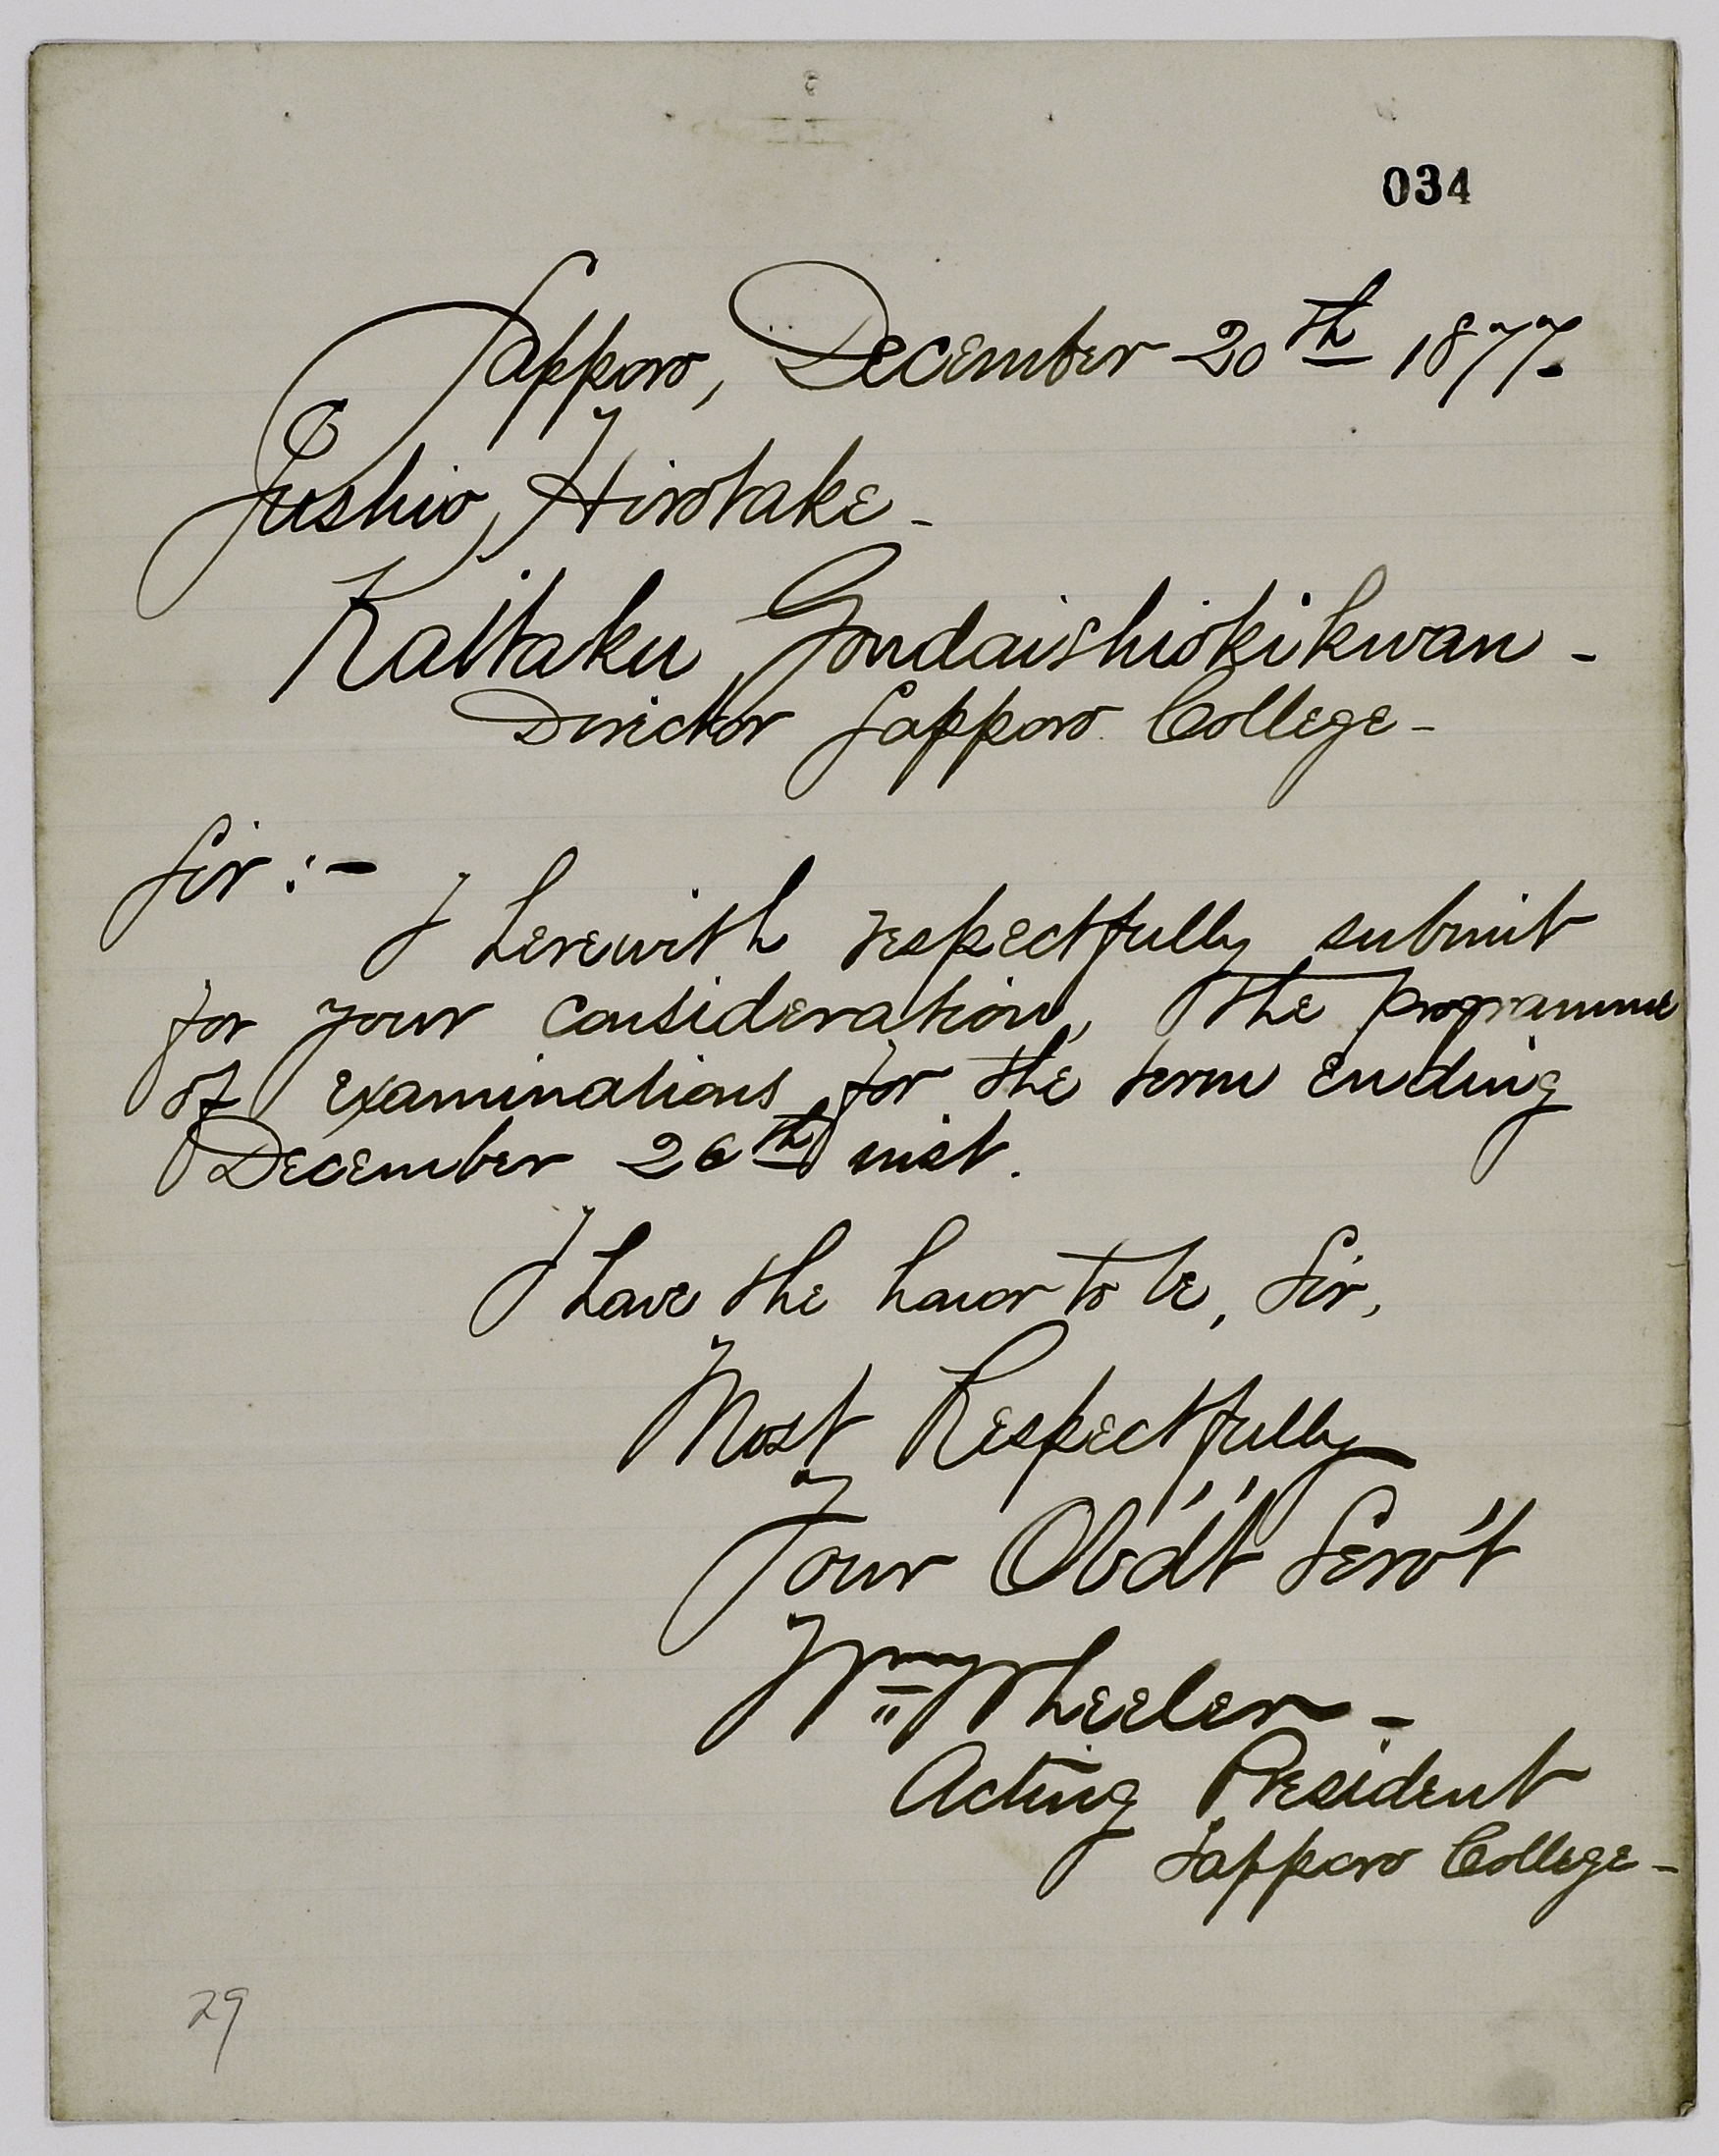 034
Sapporo, December 20th 1877.
Zusho, Hirotake -
Kaitaku Gondaishiokikwan -
Director Sapporo College -
Sir :-
I herewith respectfully submit
for your consideration, the programme
of examinations for the term ending
December 26th inst.
I have the honor to be, Sir,
Most Respectfully
Your Ob'd't Serv't
Wm Wheeler -
Acting President
Sapporo College -
29